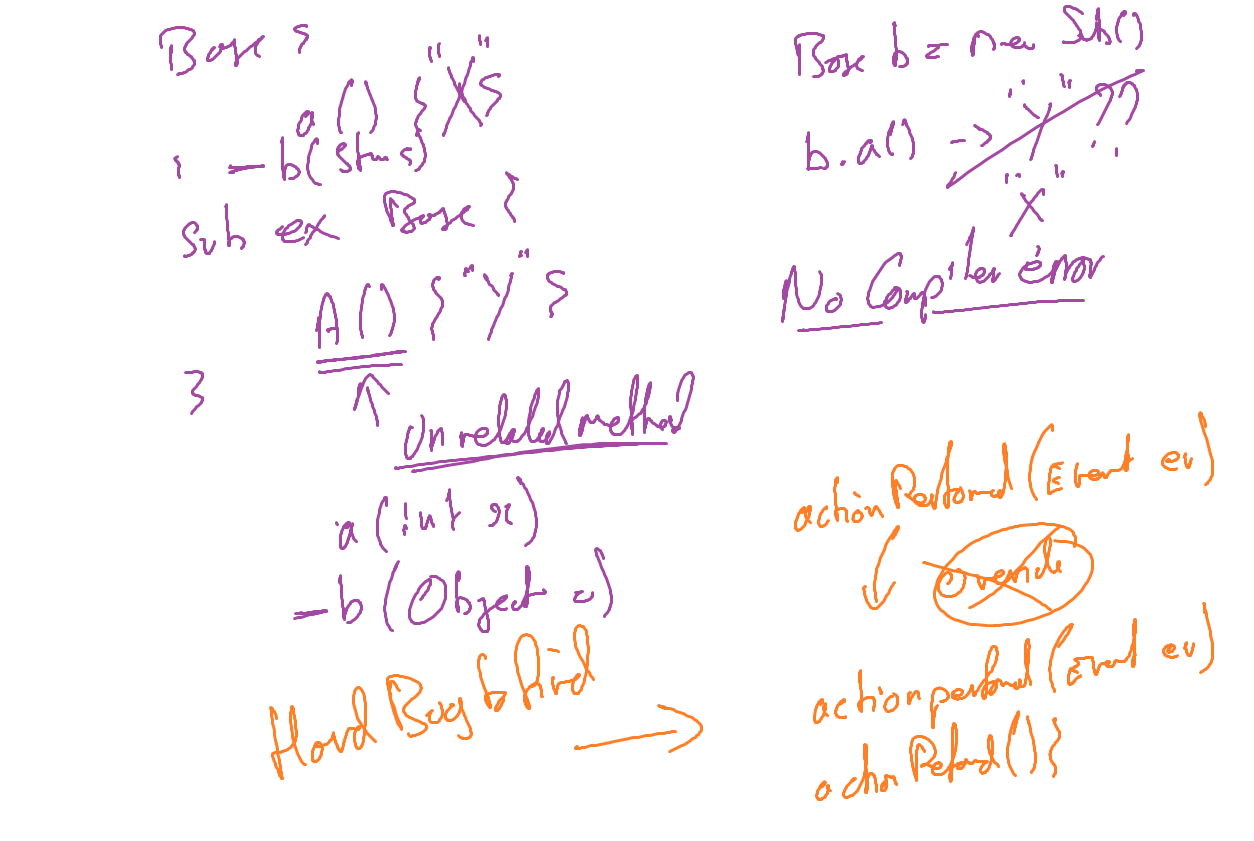 Base {
a() {"X"}
} - b(String s)
Sub ex Base {
A() {"Y"}
}
Unrelated method
a(int x)
- b(Object o)
Hard Bug to find
Base b = new Sub()
b.a() -> "Y" ??
"X"
No Compiler error
actionPerformed(Event ev)
Override
actionperformed(Event ev)
actionPerformed(){